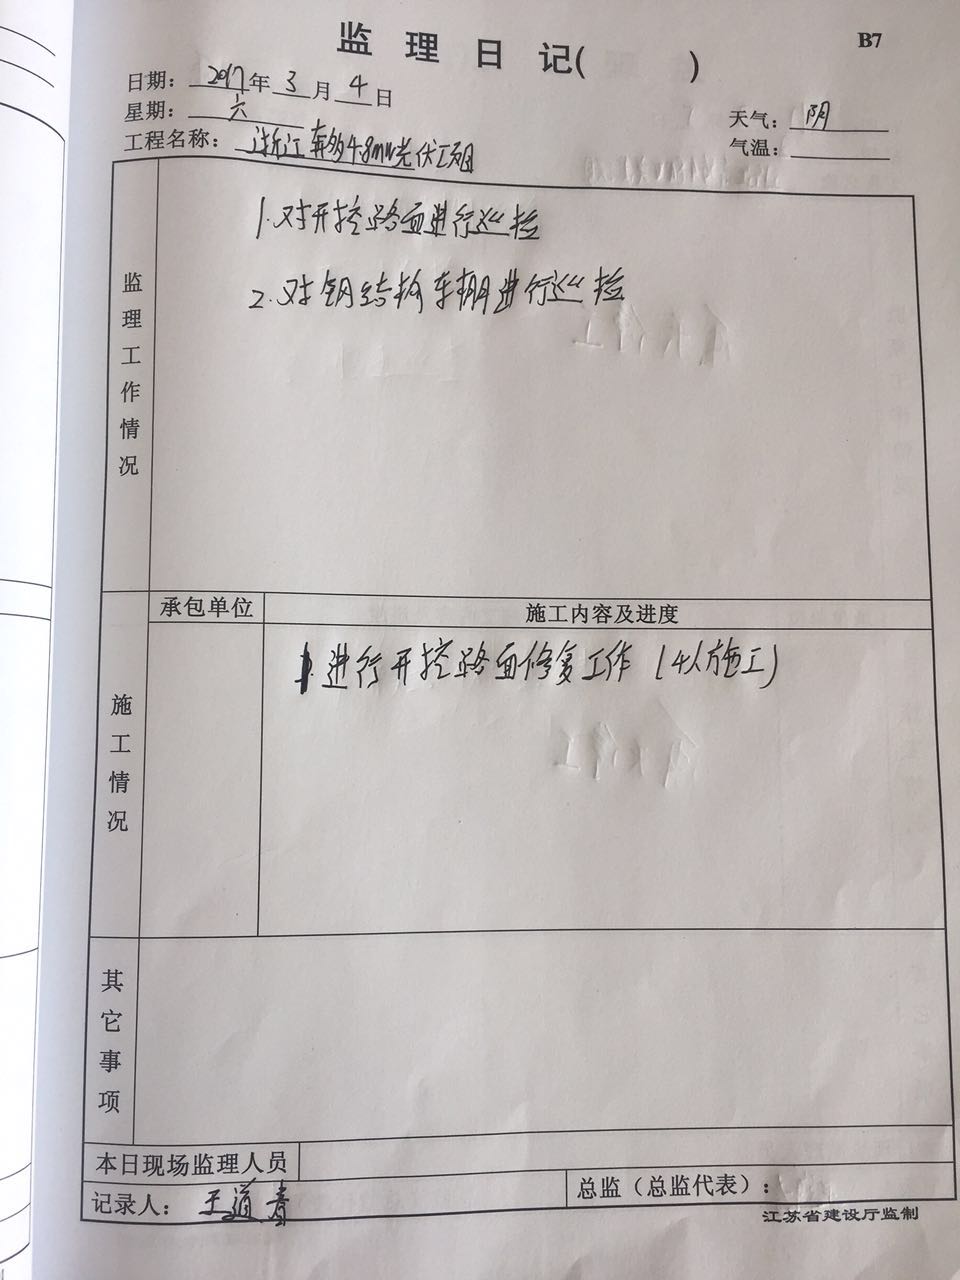 监 理 日 记( )
B7
日期：2017年3月4日
星期：六
天气：阴
工程名称：浙江奔多4.8mw光伏工项目
气温：
监理工作情况
1.对开挖路面进行巡检
2.对钢结构车棚进行巡检
承包单位
施工内容及进度
施工情况
1.进行开挖路面修复工作(4人施工)
其它事项
本日现场监理人员
记录人：王道青
总监（总监代表）：
江苏省建设厅监制